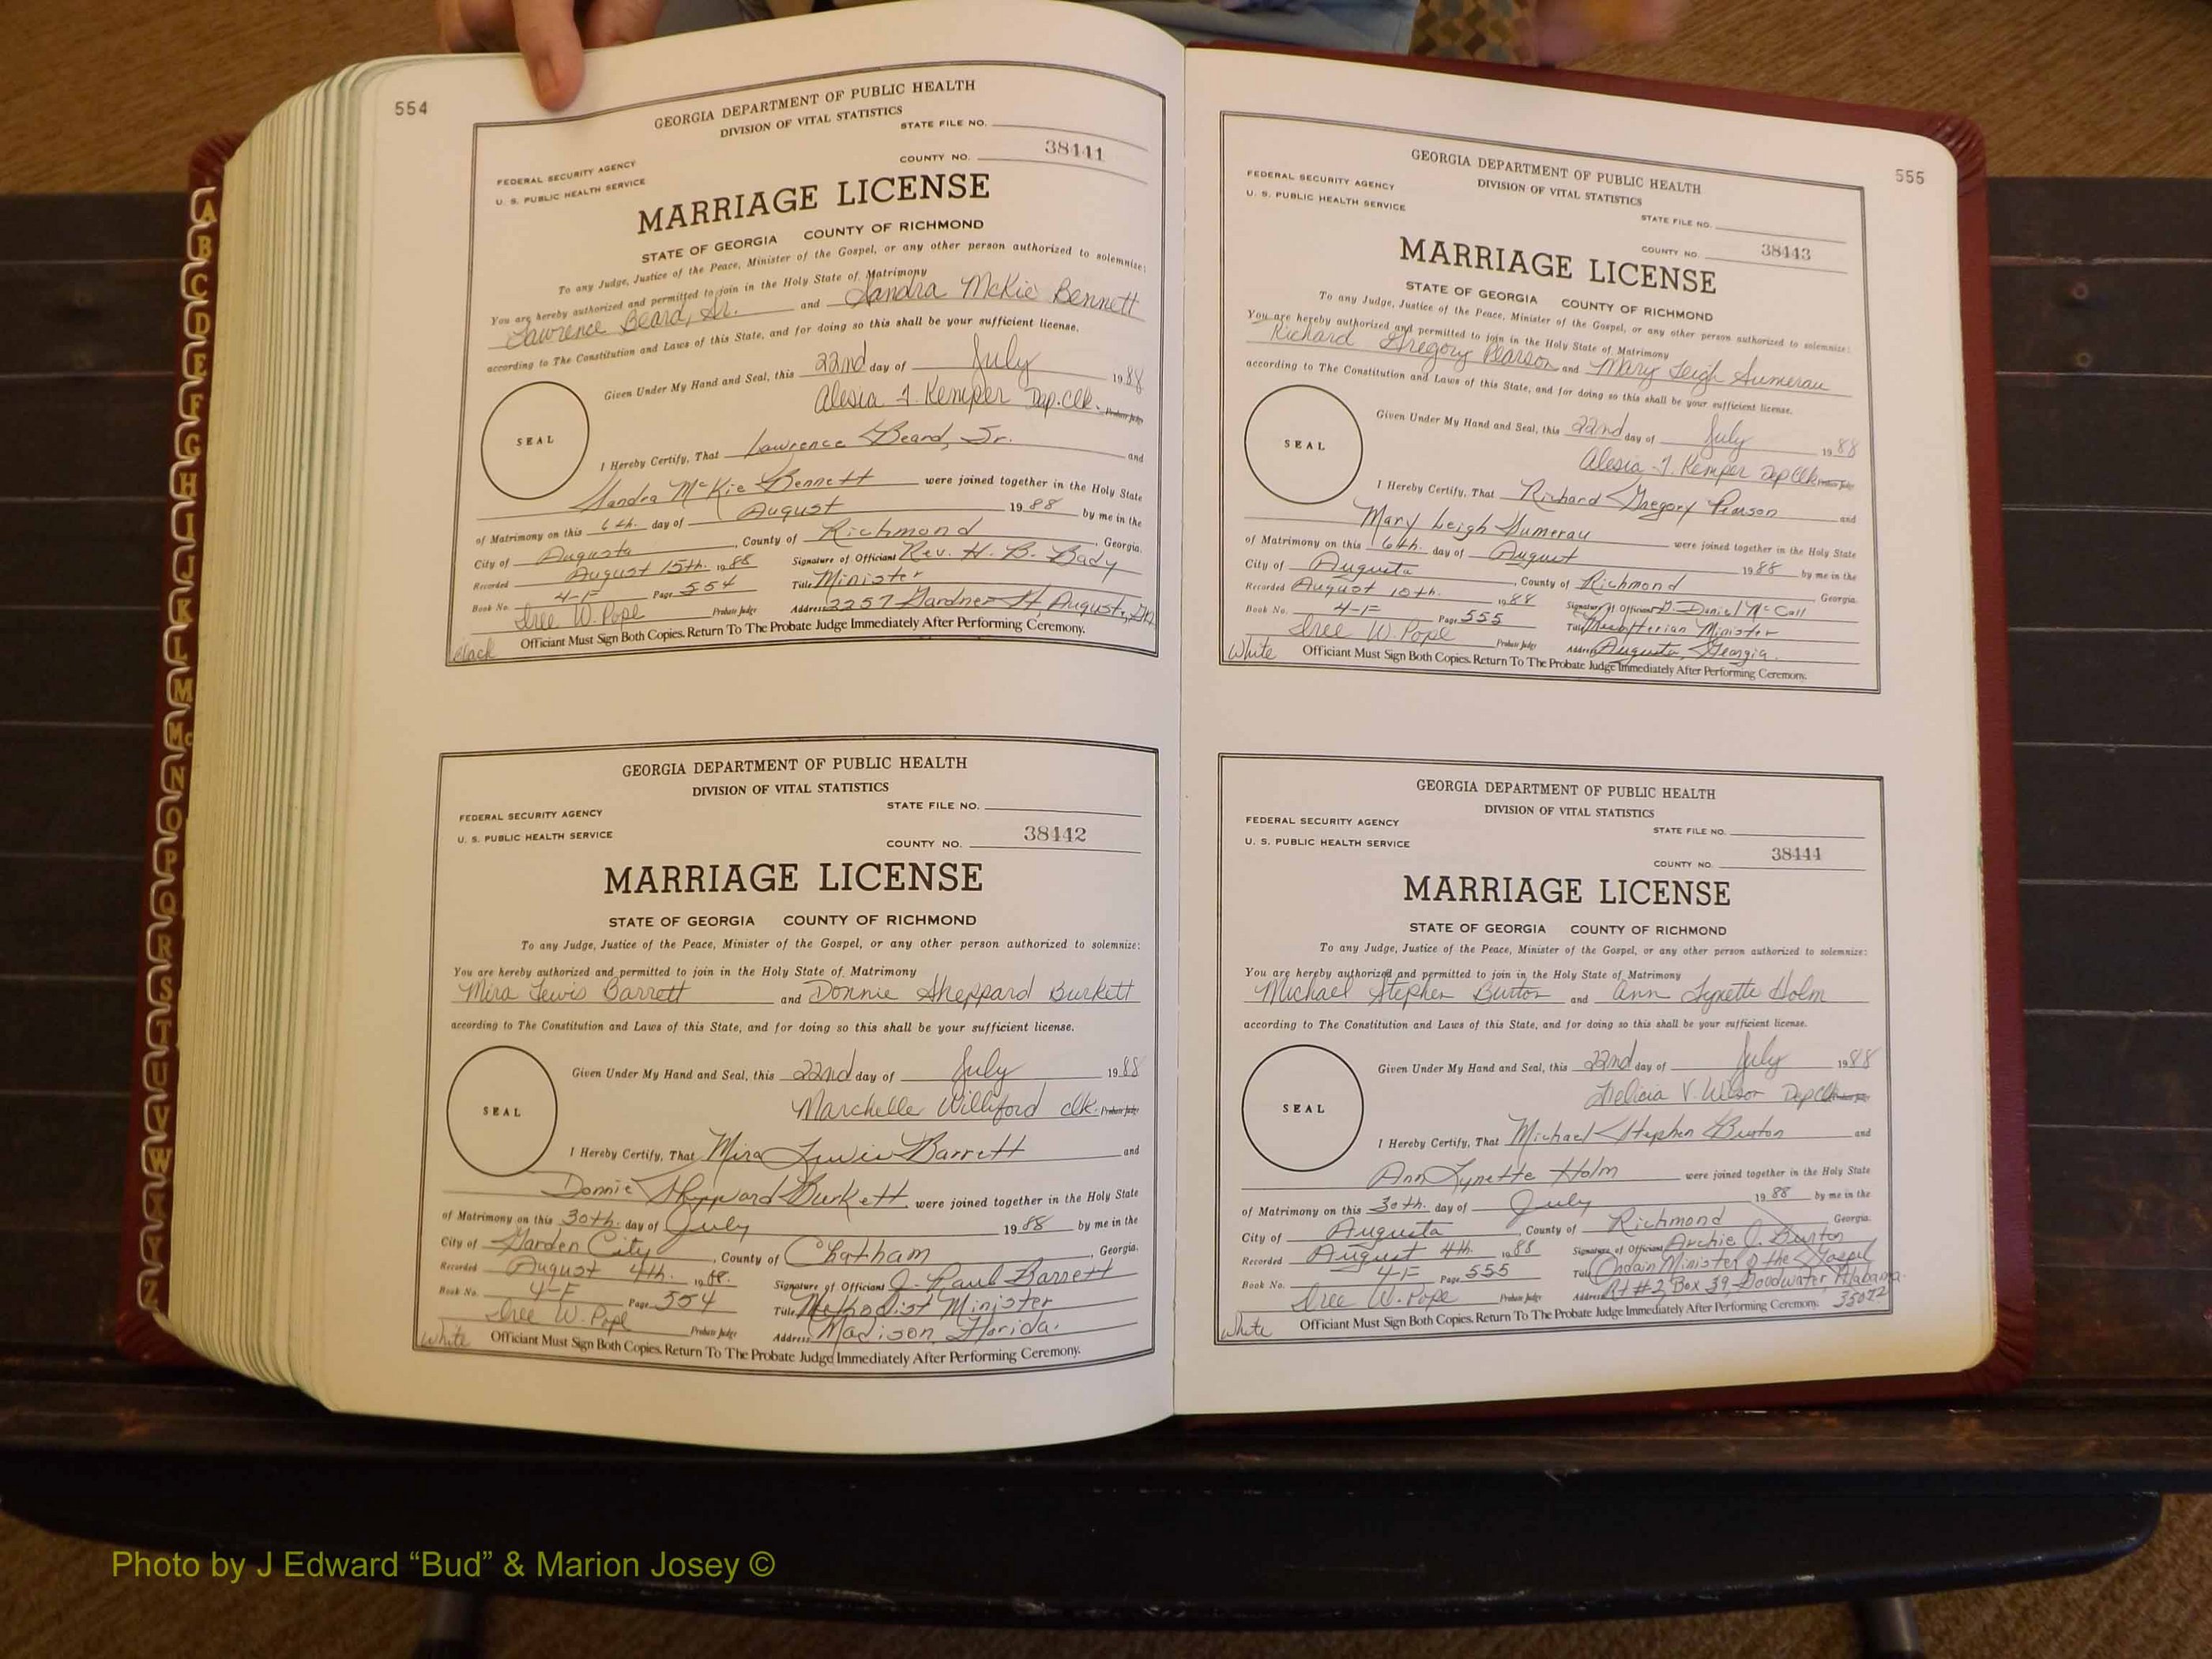 554
GEORGIA DEPARTMENT OF PUBLIC HEALTH
DIVISION OF VITAL STATISTICS
STATE FILE NO.
FEDERAL SECURITY AGENCY
U. S. PUBLIC HEALTH SERVICE
COUNTY NO. 38441
MARRIAGE LICENSE
STATE OF GEORGIA COUNTY OF RICHMOND
To any Judge, Justice of the Peace, Minister of the Gospel, or any other person authorized to solemnize:
You are hereby authorized and permitted to join in the Holy State of Matrimony
Lawrence Beard, Sr. and Sandra McKie Bennett
according to The Constitution and Laws of this State, and for doing so this shall be your sufficient license.
Given Under My Hand and Seal, this 22nd day of July 1988
Alesia J. Kemper Dep.Clk. Probate Judge
SEAL
I Hereby Certify, That Lawrence Beard, Sr. and
Sandra McKie Bennett were joined together in the Holy State
of Matrimony on this 6th. day of August 1988 by me in the
City of Augusta, County of Richmond, Georgia.
Recorded August 15th. 1988 Signature of Officiant Rev. H. B. Bady
Book No. 4-F Page 554 Title Minister
Iree W. Pope Probate Judge Address 2257 Gardner St, Augusta, GA
Black Officiant Must Sign Both Copies. Return To The Probate Judge Immediately After Performing Ceremony.
GEORGIA DEPARTMENT OF PUBLIC HEALTH
DIVISION OF VITAL STATISTICS
STATE FILE NO.
FEDERAL SECURITY AGENCY
U. S. PUBLIC HEALTH SERVICE
COUNTY NO. 38442
MARRIAGE LICENSE
STATE OF GEORGIA COUNTY OF RICHMOND
To any Judge, Justice of the Peace, Minister of the Gospel, or any other person authorized to solemnize:
You are hereby authorized and permitted to join in the Holy State of Matrimony
Mira Lewis Barrett and Donnie Sheppard Burkett
according to The Constitution and Laws of this State, and for doing so this shall be your sufficient license.
Given Under My Hand and Seal, this 22nd day of July 1988
Marchelle Williford Clk. Probate Judge
SEAL
I Hereby Certify, That Mira Lewis Barrett and
Donnie Sheppard Burkett were joined together in the Holy State
of Matrimony on this 30th. day of July 1988 by me in the
City of Garden City, County of Chatham, Georgia.
Recorded August 4th. 1988. Signature of Officiant J. Paul Barrett
Book No. 4-F Page 554 Title Methodist Minister
Iree W. Pope Probate Judge Address Madison, Florida.
White Officiant Must Sign Both Copies. Return To The Probate Judge Immediately After Performing Ceremony.
555
GEORGIA DEPARTMENT OF PUBLIC HEALTH
DIVISION OF VITAL STATISTICS
STATE FILE NO.
FEDERAL SECURITY AGENCY
U. S. PUBLIC HEALTH SERVICE
COUNTY NO. 38443
MARRIAGE LICENSE
STATE OF GEORGIA COUNTY OF RICHMOND
To any Judge, Justice of the Peace, Minister of the Gospel, or any other person authorized to solemnize:
You are hereby authorized and permitted to join in the Holy State of Matrimony
Richard Gregory Pearson and Mary Leigh Sumerau
according to The Constitution and Laws of this State, and for doing so this shall be your sufficient license.
Given Under My Hand and Seal, this 22nd day of July 1988
Alesia J. Kemper Dep Clk Probate Judge
SEAL
I Hereby Certify, That Richard Gregory Pearson and
Mary Leigh Sumerau were joined together in the Holy State
of Matrimony on this 6th. day of August 1988 by me in the
City of Augusta, County of Richmond Georgia.
Recorded August 10th. 1988 Signature of Officiant D. Daniel McCall
Book No. 4-F Page 555 Title Presbyterian Minister
Iree W. Pope Probate Judge Address Augusta, Georgia.
White Officiant Must Sign Both Copies. Return To The Probate Judge Immediately After Performing Ceremony.
GEORGIA DEPARTMENT OF PUBLIC HEALTH
DIVISION OF VITAL STATISTICS
STATE FILE NO.
FEDERAL SECURITY AGENCY
U. S. PUBLIC HEALTH SERVICE
COUNTY NO. 38444
MARRIAGE LICENSE
STATE OF GEORGIA COUNTY OF RICHMOND
To any Judge, Justice of the Peace, Minister of the Gospel, or any other person authorized to solemnize:
You are hereby authorized and permitted to join in the Holy State of Matrimony
Michael Stephen Burton and Ann Lynette Holm
according to The Constitution and Laws of this State, and for doing so this shall be your sufficient license.
Given Under My Hand and Seal, this 22nd day of July 1988
Felicia V. Wilson Dep Clk Probate Judge
SEAL
I Hereby Certify, That Michael Stephen Burton and
Ann Lynette Holm were joined together in the Holy State
of Matrimony on this 30th. day of July 1988 by me in the
City of Augusta, County of Richmond Georgia.
Recorded August 4th. 1988 Signature of Officiant Archie J. Burton
Book No. 4-F Page 555 Title Ordain Minister of the Gospel
Iree W. Pope Probate Judge Address Rt #2, Box 39, Goodwater, Alabama. 35072
White Officiant Must Sign Both Copies. Return To The Probate Judge Immediately After Performing Ceremony.
A
B
C
D
E
F
G
H
I
J
K
L
M
Mc
N
O
P
Q
R
S
T
U
V
W
X
Y
Z
Photo by J Edward “Bud” & Marion Josey ©